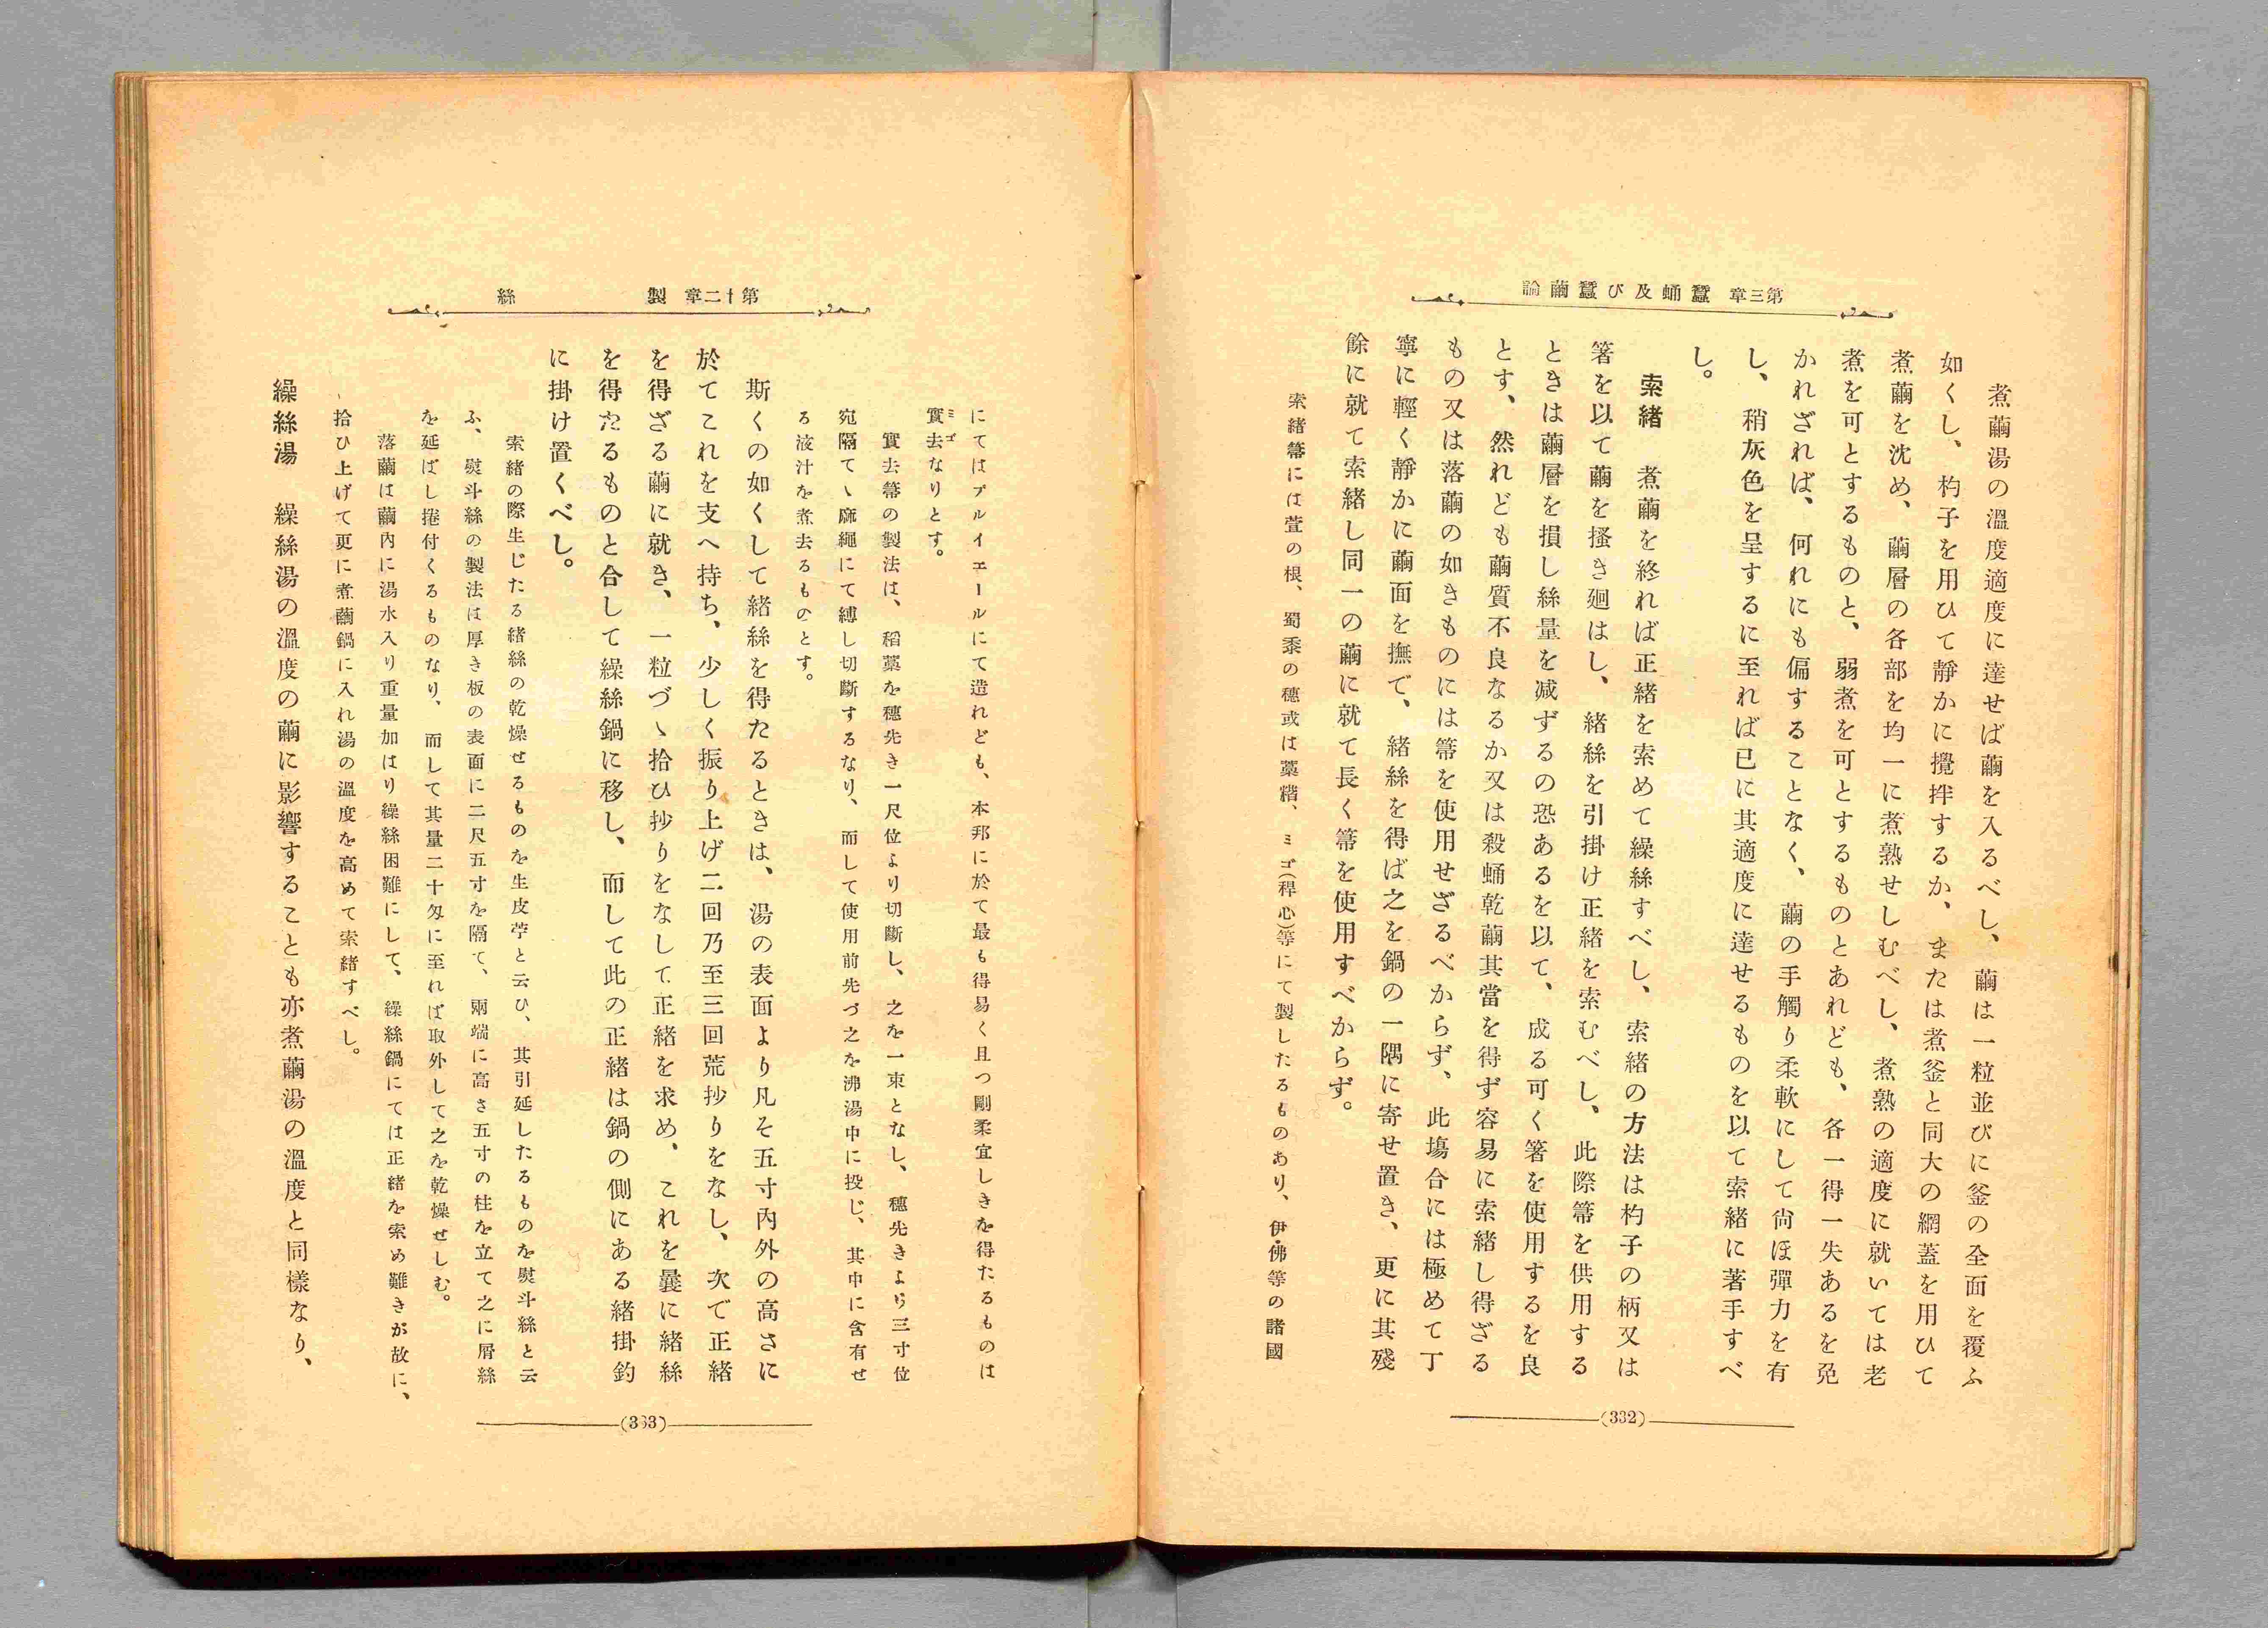 第三章 蠶蛹及び蠶繭論
煮繭湯の溫度適度に達せば繭を入るべし、繭は一粒並びに釜の全面を覆ふ
如くし、杓子を用ひて靜かに攪拌するか、または煮釜と同大の網蓋を用ひて
煮繭を沈め、繭層の各部を均一に煮熟せしむべし、煮熟の適度に就いては老
煮を可とするものと、弱煮を可とするものとあれども、各一得一失あるを免
かれざれば、何れにも偏することなく、繭の手觸り柔軟にして尙ほ彈力を有
し、稍灰色を呈するに至れば已に其適度に達せるものを以て索緒に著手すべ
し。
索緒 煮繭を終れば正緒を索めて繰絲すべし、索緒の方法は杓子の柄又は
箸を以て繭を搔き廻はし、緒絲を引掛け正緒を索むべし、此際箒を供用する
ときは繭層を損し絲量を減ずるの恐あるを以て、成る可く箸を使用するを良
とす、然れども繭質不良なるか又は殺蛹乾繭其當を得ず容易に索緒し得ざる
もの又は落繭の如きものには箒を使用せざるべからず、此塲合には極めて丁
寧に輕く靜かに繭面を撫で、緒絲を得ば之を鍋の一隅に寄せ置き、更に其殘
餘に就て索緒し同一の繭に就て長く箒を使用すべからず。
索緒箒には萱の根、蜀黍の穗或は藁楷、ミゴ(稈心)等にて製したるものあり、伊・佛等の諸國
(332)
第十二章 製 絲
にてはブルイエールにて造れども、本邦に於て最も得易く且つ剛柔宜しきを得たるものは
實去なりとす。
ミゴ
實去箒の製法は、稻藁を穗先き一尺位より切斷し、之を一束となし、穗先きより三寸位
宛隔てゝ麻繩にて縛し切斷するなり、而して使用前先づ之を沸湯中に投じ、其中に含有せ
る液汁を煮去るものとす。
斯くの如くして緒絲を得たるときは、湯の表面より凡そ五寸內外の高さに
於てこれを支へ持ち、少しく振り上げ二回乃至三回荒抄りをなし、次で正緒
を得ざる繭に就き、一粒づゝ拾ひ抄りをなして正緒を求め、これを曩に緒絲
を得たるものと合して繰絲鍋に移し、而して此の正緒は鍋の側にある緒掛釣
に掛け置くべし。
索緒の際生じたる緒絲の乾燥せるものを生皮苧と云ひ、其引延したるものを熨斗絲と云
ふ、熨斗絲の製法は厚き板の表面に二尺五寸を隔て、兩端に高さ五寸の柱を立て之に屑絲
を延ばし捲付くるものなり、而して其量二十匁に至れば取外して之を乾燥せしむ。
落繭は繭內に湯水入り重量加はり繰絲困難にして、繰絲鍋にては正緒を索め難きが故に、
拾ひ上げて更に煮繭鍋に入れ湯の溫度を高めて索緒すべし。
繰絲湯 繰絲湯の溫度の繭に影響することも亦煮繭湯の溫度と同樣なり、
(363)